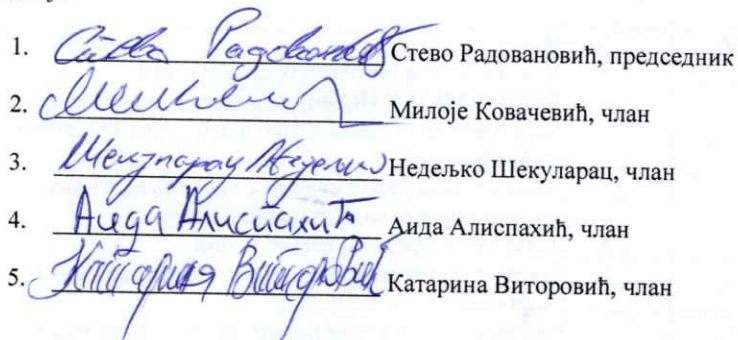 1. Стево Радовановић Стево Радовановић, председник
2. Милоје Ковачевић, члан
3. Шекуларац Недељко Недељко Шекуларац, члан
4. Аида Алиспахић Аида Алиспахић, члан
5. Катарина Виторовић Катарина Виторовић, члан